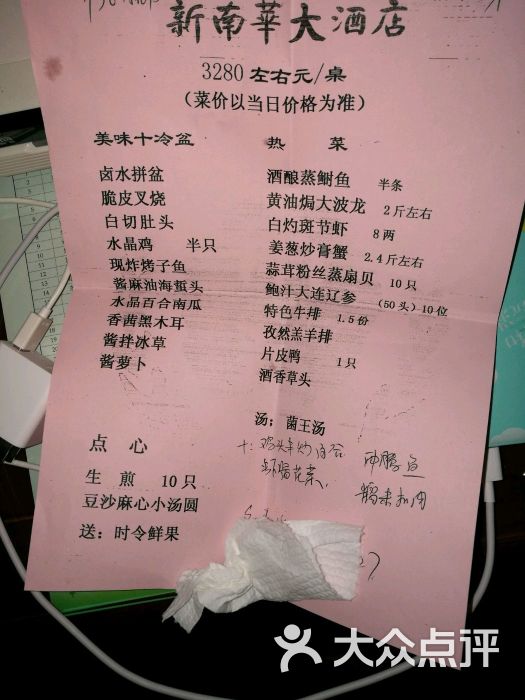 新南華大酒店
3280 左右元/桌
（菜价以当日价格为准）
美味十冷盆
卤水拼盆
脆皮叉烧
白切肚头
水晶鸡 半只
现炸烤子鱼
酱麻油海蜇头
水晶百合南瓜
香茜黑木耳
酱拌冰草
酱萝卜
点心
生煎 10只
豆沙麻心小汤圆
送：时令鲜果
热菜
酒酿蒸鲥鱼 半条
黄油焗大波龙 2斤左右
白灼斑节虾 8两
姜葱炒膏蟹 2.4斤左右
蒜茸粉丝蒸扇贝 10只
鲍汁大连辽参 （50头）10位
特色牛排 1.5份
孜然羔羊排
片皮鸭 1只
酒香草头
汤：菌王汤
大众点评